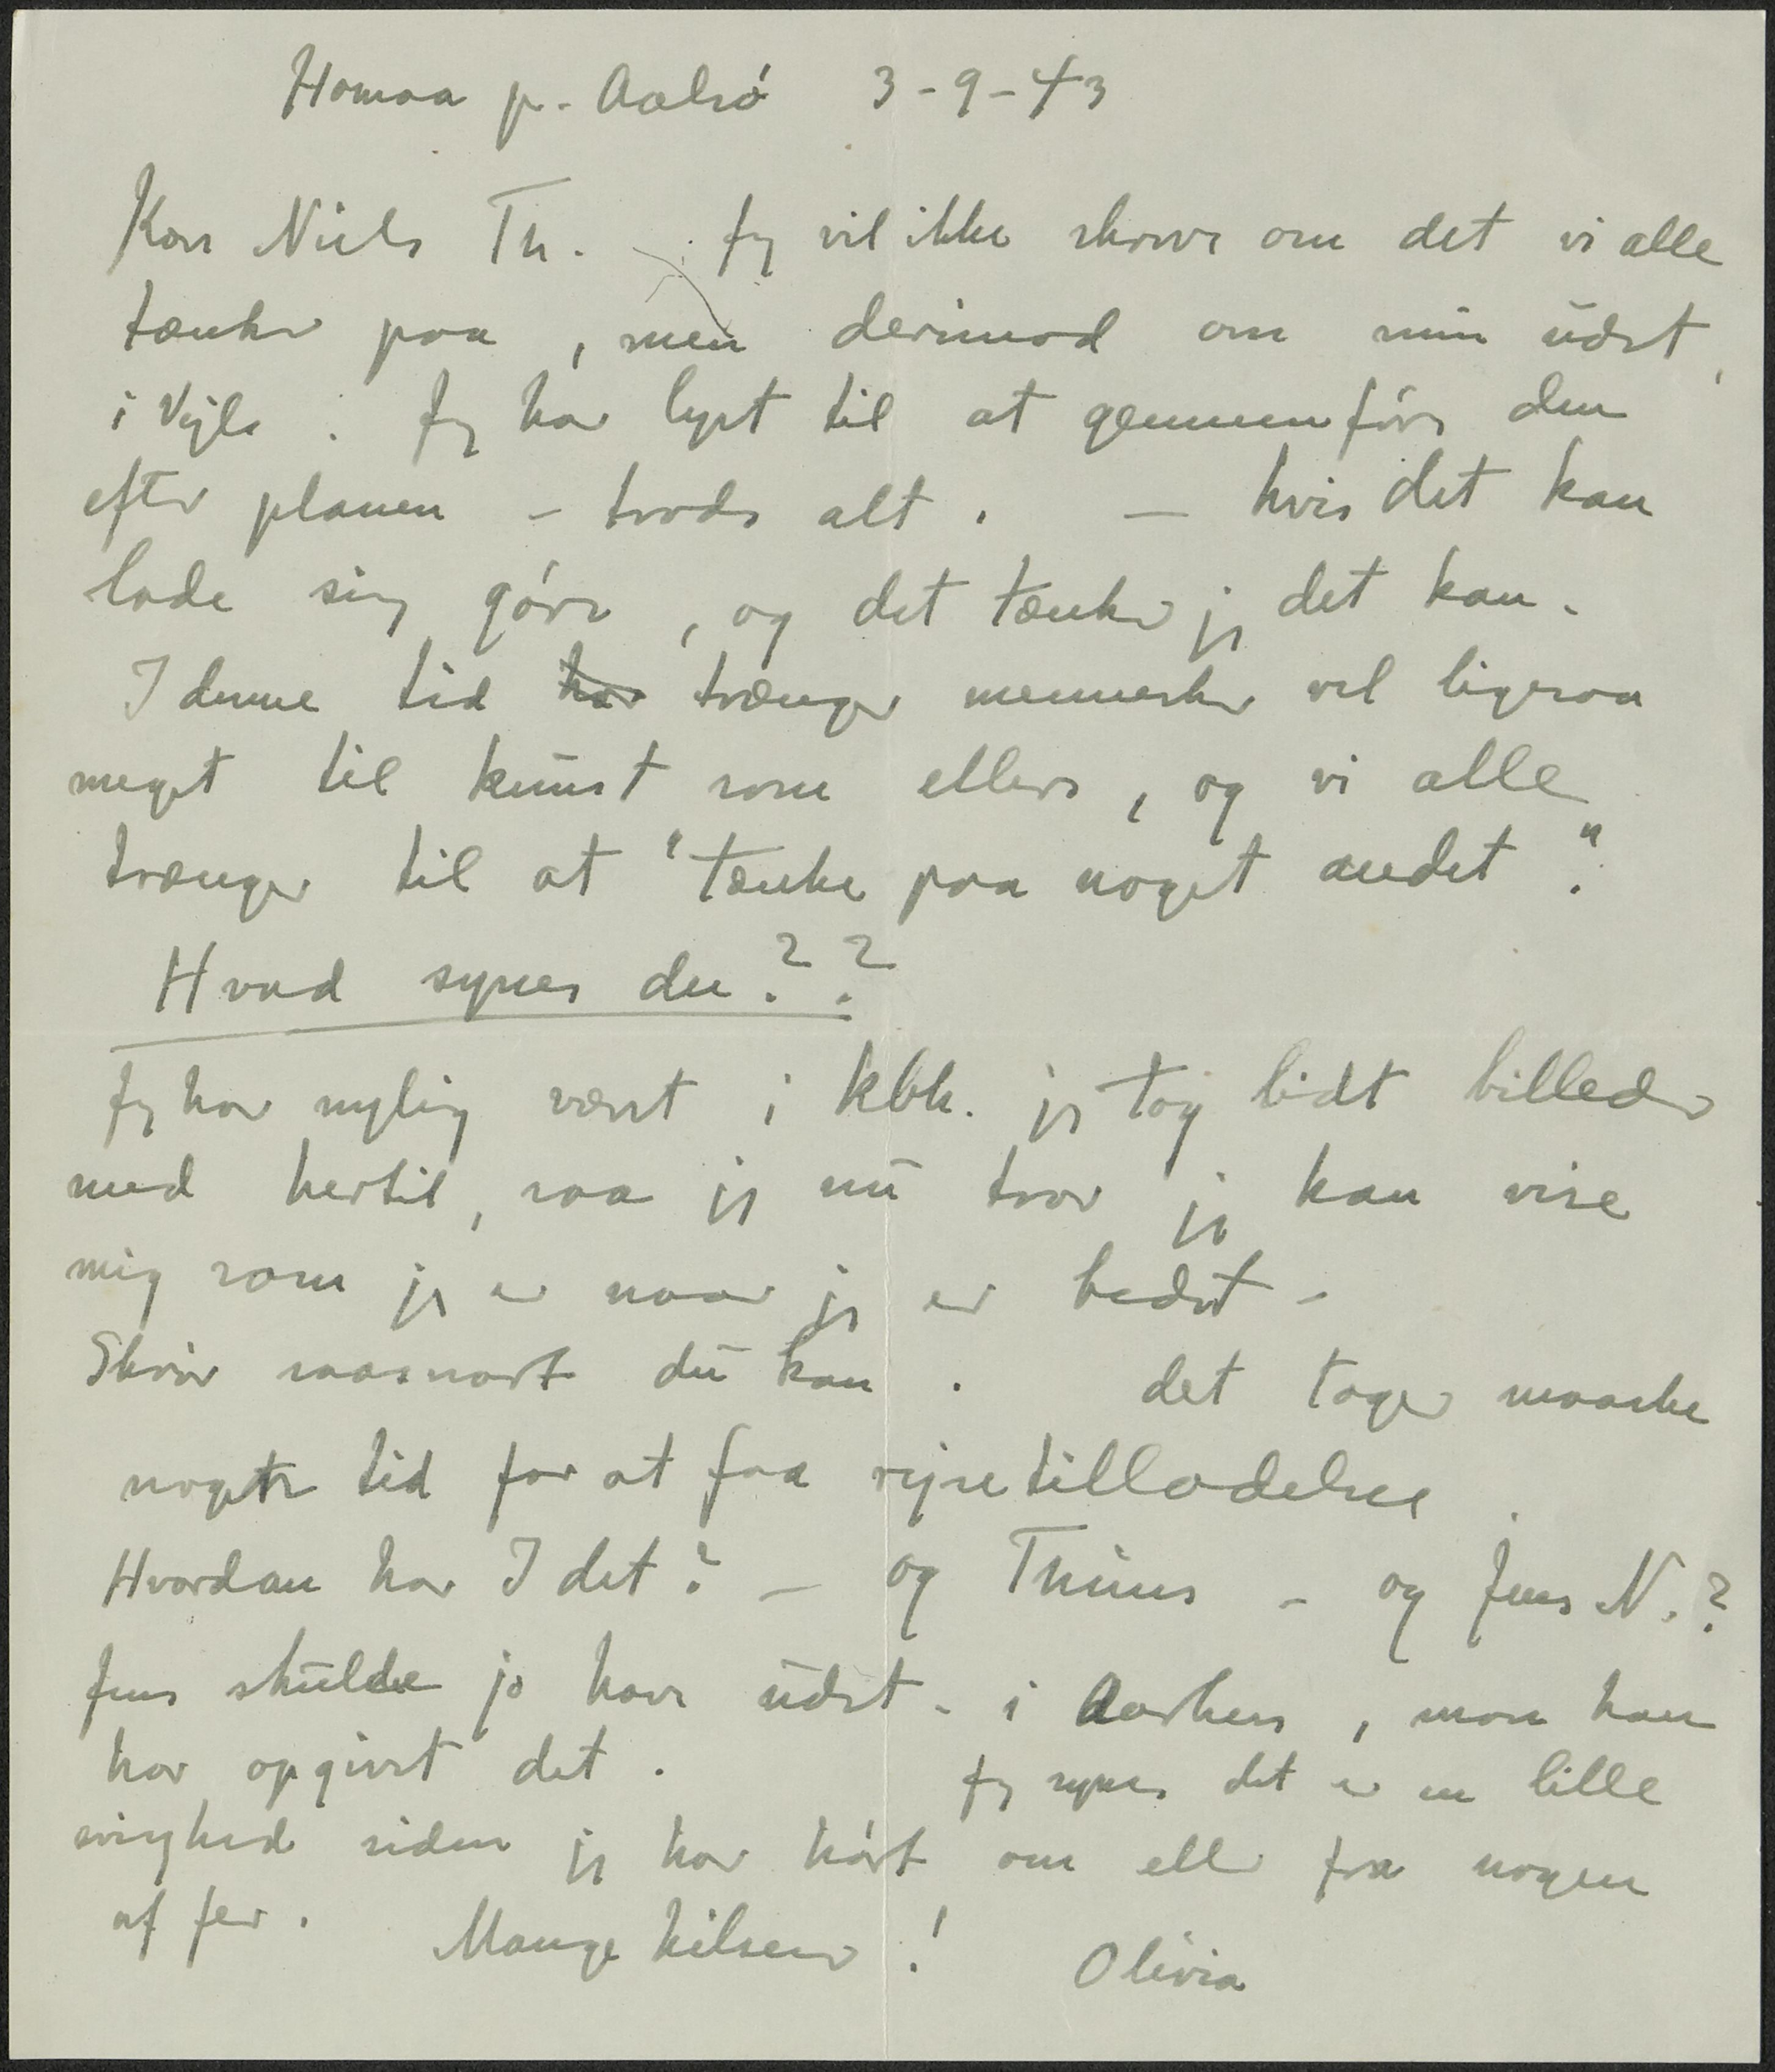 Homaa p. Aalsó 3-9-43
Kære Niels Th. — Jeg vil ikke skrive om det vi alle
tænker paa, men derimod om min udst.
i Vejle. Jeg har lyst til at gennemføre den
efter planen – trods alt. — hvis det kan
lade sig gøre, og det tænker jeg det kan.
I denne tid har trænger mennesker vel ligesaa
meget til kunst som ellers, og vi alle
trænger til at "tænke paa noget andet".
Hvad synes du??
Jeg har nylig været i kbh. jeg tog lidt billeder
med hertil, saa jeg nu tror jeg kan vise
mig som jeg er naar jeg er bedst –
Skriv saasnart du kan. det tager maaske
noget tid for at faa rejsetilladelse.
Hvordan har I det? – og Thiims – og Jens N.?
Jens skulde jo have udst. i Aarhus, mon han
har opgivet det. Jeg synes det er en lille
evighed siden jeg har hørt om eller fra nogen
af jer. Mange hilsener! Olivia